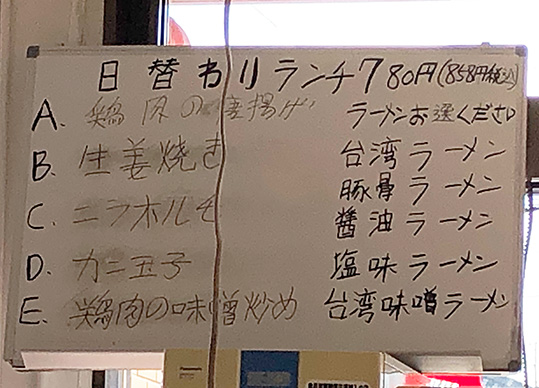 日替わりランチ780円(858円税込)
A. 鶏肉の唐揚げ
B. 生姜焼き
C. ニラホルモ
D. カニ玉子
E. 鶏肉の味噌炒め
ラーメンお選ください
台湾ラーメン
豚骨ラーメン
醤油ラーメン
塩味ラーメン
台湾味噌ラーメン
Panasonic